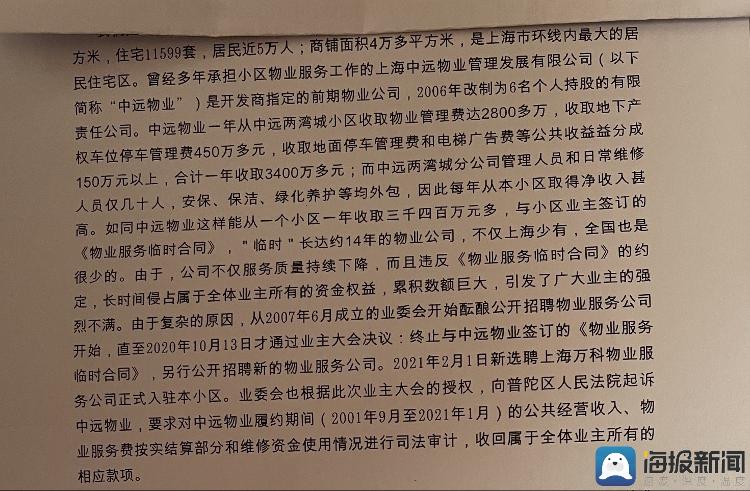 方米，住宅11599套，居民近5万人；商铺面积4万多平方米，是上海市环线内最大的居
民住宅区。曾经多年承担小区物业服务工作的上海中远物业管理发展有限公司（以下
简称“中远物业”）是开发商指定的前期物业公司，2006年改制为6名个人持股的有限
责任公司。中远物业一年从中远两湾城小区收取物业管理费达2800多万，收取地下产
权车位停车管理费450万多元，收取地面停车管理费和电梯广告费等公共收益益分成
150万元以上，合计一年收取3400万多元；而中远两湾城分公司管理人员和日常维修
人员仅几十人，安保、保洁、绿化养护等均外包，因此每年从本小区取得净收入甚
高。如同中远物业这样能从一个小区一年收取三千四百万元多，与小区业主签订的
《物业服务临时合同》，"临时"长达约14年的物业公司，不仅上海少有，全国也是
很少的。由于，公司不仅服务质量持续下降，而且违反《物业服务临时合同》的约
定，长时间侵占属于全体业主所有的资金权益，累积数额巨大，引发了广大业主的强
烈不满。由于复杂的原因，从2007年6月成立的业委会开始酝酿公开招聘物业服务公司
开始，直至2020年10月13日才通过业主大会决议：终止与中远物业签订的《物业服务
临时合同》，另行公开招聘新的物业服务公司。2021年2月1日新选聘上海万科物业服
务公司正式入驻本小区。业委会也根据此次业主大会的授权，向普陀区人民法院起诉
中远物业，要求对中远物业履约期间（2001年9月至2021年1月）的公共经营收入、物
业服务费按实结算部分和维修资金使用情况进行司法审计，收回属于全体业主所有的
相应款项。
海报新闻
态度·深度·温度